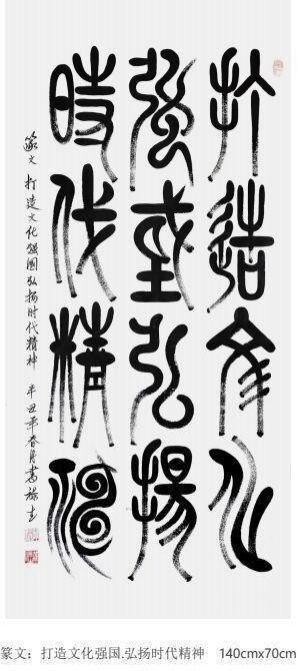 打造文化
强国弘扬
时代精神
篆文 打造文化强国弘扬时代精神 辛丑年春月
篆文：打造文化强国.弘扬时代精神 140cmx70cm